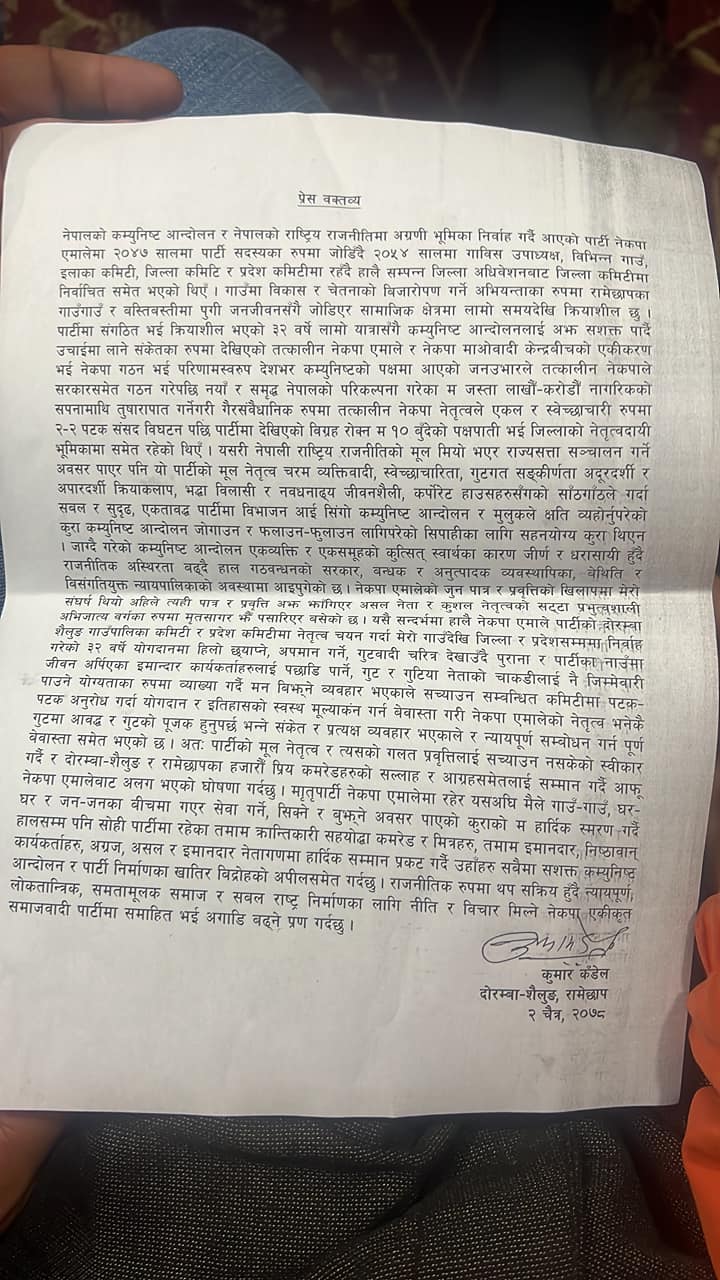 प्रेस वक्तव्य
नेपालको कम्युनिष्ट आन्दोलन र नेपालको राष्ट्रिय राजनीतिमा अग्रणी भूमिका निर्वाह गर्दै आएको पार्टी नेकपा
एमालेमा २०४७ सालमा पार्टी सदस्यका रुपमा जोडिँदै २०५४ सालमा गाविस उपाध्यक्ष, विभिन्न गाउँ,
इलाका कमिटी, जिल्ला कमिटि र प्रदेश कमिटीमा रहँदै हालै सम्पन्न जिल्ला अधिवेशनबाट जिल्ला कमिटीमा
निर्वाचित समेत भएको थिएँ । गाउँमा विकास र चेतनाको बिजारोपण गर्ने अभियन्ताका रुपमा रामेछापका
गाउँगाउँ र वस्तिवस्तीमा पुगी जनजीवनसँगै जोडिएर सामाजिक क्षेत्रमा लामो समयदेखि क्रियाशील छु ।
पार्टीमा संगठित भई क्रियाशील भएको ३२ वर्षे लामो यात्रासँगै कम्युनिष्ट आन्दोलनलाई अझ सशक्त पार्दै
उचाईमा लाने संकेतका रुपमा देखिएको तत्कालीन नेकपा एमाले र नेकपा माओवादी केन्द्रबीचको एकीकरण
भई नेकपा गठन भई परिणामस्वरुप देशभर कम्युनिष्टको पक्षमा आएको जनउभारले तत्कालीन नेकपाले
सरकारसमेत गठन गरेपछि नयाँ र समृद्ध नेपालको परिकल्पना गरेका म जस्ता लाखौं-करोडौं नागरिकको
सपनामाथि तुषारापात गर्नेगरी गैरसवैधानिक रुपमा तत्कालीन नेकपा नेतृत्वले एकल र स्वेच्छाचारी रुपमा
२-२ पटक संसद विघटन पछि पार्टीमा देखिएको विग्रह रोक्न म १० बुँदेको पक्षपाती भई जिल्लाको नेतृत्वदायी
भूमिकामा समेत रहेको थिएँ । यसरी नेपाली राष्ट्रिय राजनीतिको मूल मियो भएर राज्यसत्ता सञ्चालन गर्ने
अवसर पाएर पनि यो पार्टीको मूल नेतृत्व चरम व्यक्तिवादी, स्वेच्छाचारिता, गुटगत सङ्कीर्णता अदूरदर्शी र
अपारदर्शी क्रियाकलाप, भद्धा विलासी र नवधनाढ्य जीवनशैली, कर्पोरेट हाउसहरुसँगको साँठगाँठले गर्दा
सबल र सुदृढ, एकताबद्ध पार्टीमा विभाजन आई सिंगो कम्युनिष्ट आन्दोलन र मुलुकले क्षति व्यहोर्नुपरेको
कुरा कम्युनिष्ट आन्दोलन जोगाउन र फलाउन-फुलाउन लागिपरेको सिपाहीका लागि सहनयोग्य कुरा थिएन
। जाग्दै गरेको कम्युनिष्ट आन्दोलन एकव्यक्ति र एकसमूहको कुत्सित् स्वार्थका कारण जीर्ण र धरासायी हुँदै
राजनीतिक अस्थिरता बढ्दै हाल गठवन्धनको सरकार, बन्धक र अनुत्पादक व्यवस्थापिका, बेथिति र
विसंगतियुक्त न्यायपालिकाको अवस्थामा आइपुगेको छ । नेकपा एमालेको जुन पात्र र प्रवृत्तिको खिलापमा मेरो
संघर्ष थियो अहिले त्यही पात्र र प्रवृत्ति अझ झाँगिएर असल नेता र कुशल नेतृत्वको सट्टा प्रभुत्वशाली
अभिजात्य वर्गका रुपमा मृतसागर झैं पसारिएर बसेको छ । यसै सन्दर्भमा हालै नेकपा एमाले पार्टीको दोरम्बा
शैलुङ गाउँपालिका कमिटी र प्रदेश कमिटीमा नेतृत्व चयन गर्दा मेरो गाउँदेखि जिल्ला र प्रदेशसम्ममा निर्वाह
गरेको ३२ वर्षे योगदानमा हिलो छ्याप्ने, अपमान गर्ने, गुटवादी चरित्र देखाउँदै पुराना र पार्टीका नाउँमा
जीवन अर्पिएका इमान्दार कार्यकर्ताहरुलाई पछाडि पार्ने, गुट र गुटिया नेताको चाकडीलाई नै जिम्मेवारी
पाउने योग्यताका रुपमा व्याख्या गर्दै मन बिझ्ने व्यवहार भएकाले सच्याउन सम्वन्धित कमिटीमा पटक-
पटक अनुरोध गर्दा योगदान र इतिहासको स्वस्थ मूल्याकंन गर्न बेवास्ता गरी नेकपा एमालेको नेतृत्व भनेकै
गुटमा आवद्ध र गुटको पूजक हुनुपर्छ भन्ने संकेत र प्रत्यक्ष व्यवहार भएकाले र न्यायपूर्ण सम्वोधन गर्न पूर्ण
बेवास्ता समेत भएको छ । अतः पार्टीको मूल नेतृत्व र त्यसको गलत प्रवृत्तिलाई सच्याउन नसकेको स्वीकार
गर्दै र दोरम्बा-शैलुङ र रामेछापका हजारौं प्रिय कमरेडहरुको सल्लाह र आग्रहसमेतलाई सम्मान गर्दै आफू
नेकपा एमालेबाट अलग भएको घोषणा गर्दछु । मातृपार्टी नेकपा एमालेमा रहेर यसअघि मैले गाउँ-गाउँ, घर-
घर र जन-जनका बीचमा गएर सेवा गर्ने, सिक्ने र बुझ्ने अवसर पाएको कुराको म हार्दिक स्मरण गर्दै
हालसम्म पनि सोही पार्टीमा रहेका तमाम क्रान्तिकारी सहयोद्धा कमरेड र मित्रहरु, तमाम इमानदार, निष्ठावान्
कार्यकर्ताहरु, अग्रज, असल र इमानदार नेतागणमा हार्दिक सम्मान प्रकट गर्दै उहाँहरु सवैमा सशक्त कम्युनिष्ट
आन्दोलन र पार्टी निर्माणका खातिर विद्रोहको अपीलसमेत गर्दछु । राजनीतिक रुपमा थप सक्रिय हुँदै न्यायपूर्ण,
लोकतान्त्रिक, समतामूलक समाज र सबल राष्ट्र निर्माणका लागि नीति र विचार मिल्ने नेकपा एकीकृत
समाजवादी पार्टीमा समाहित भई अगाडि बढ्ने प्रण गर्दछु ।
कुमार कँडेल
दोरम्बा-शैलुङ, रामेछाप
२ चैत्र, २०७८